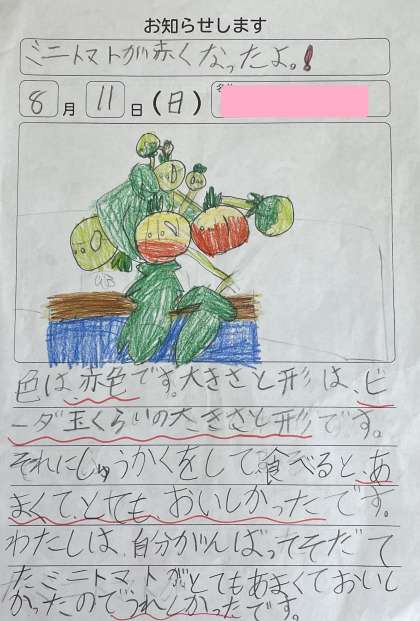 お知らせします
ミニトマトが赤くなったよ。!
8月11日(日)
色は、赤色です。大きさと形は、ビ
ーダ玉くらいの大きさと形です。
それにしゅうかくをして、食べると、あ
まくて、とても おいしかったです。
わたしは、自分ががんばってそだて
たミニトマトがとてもあまくておいし
かったのでうれしかったです。